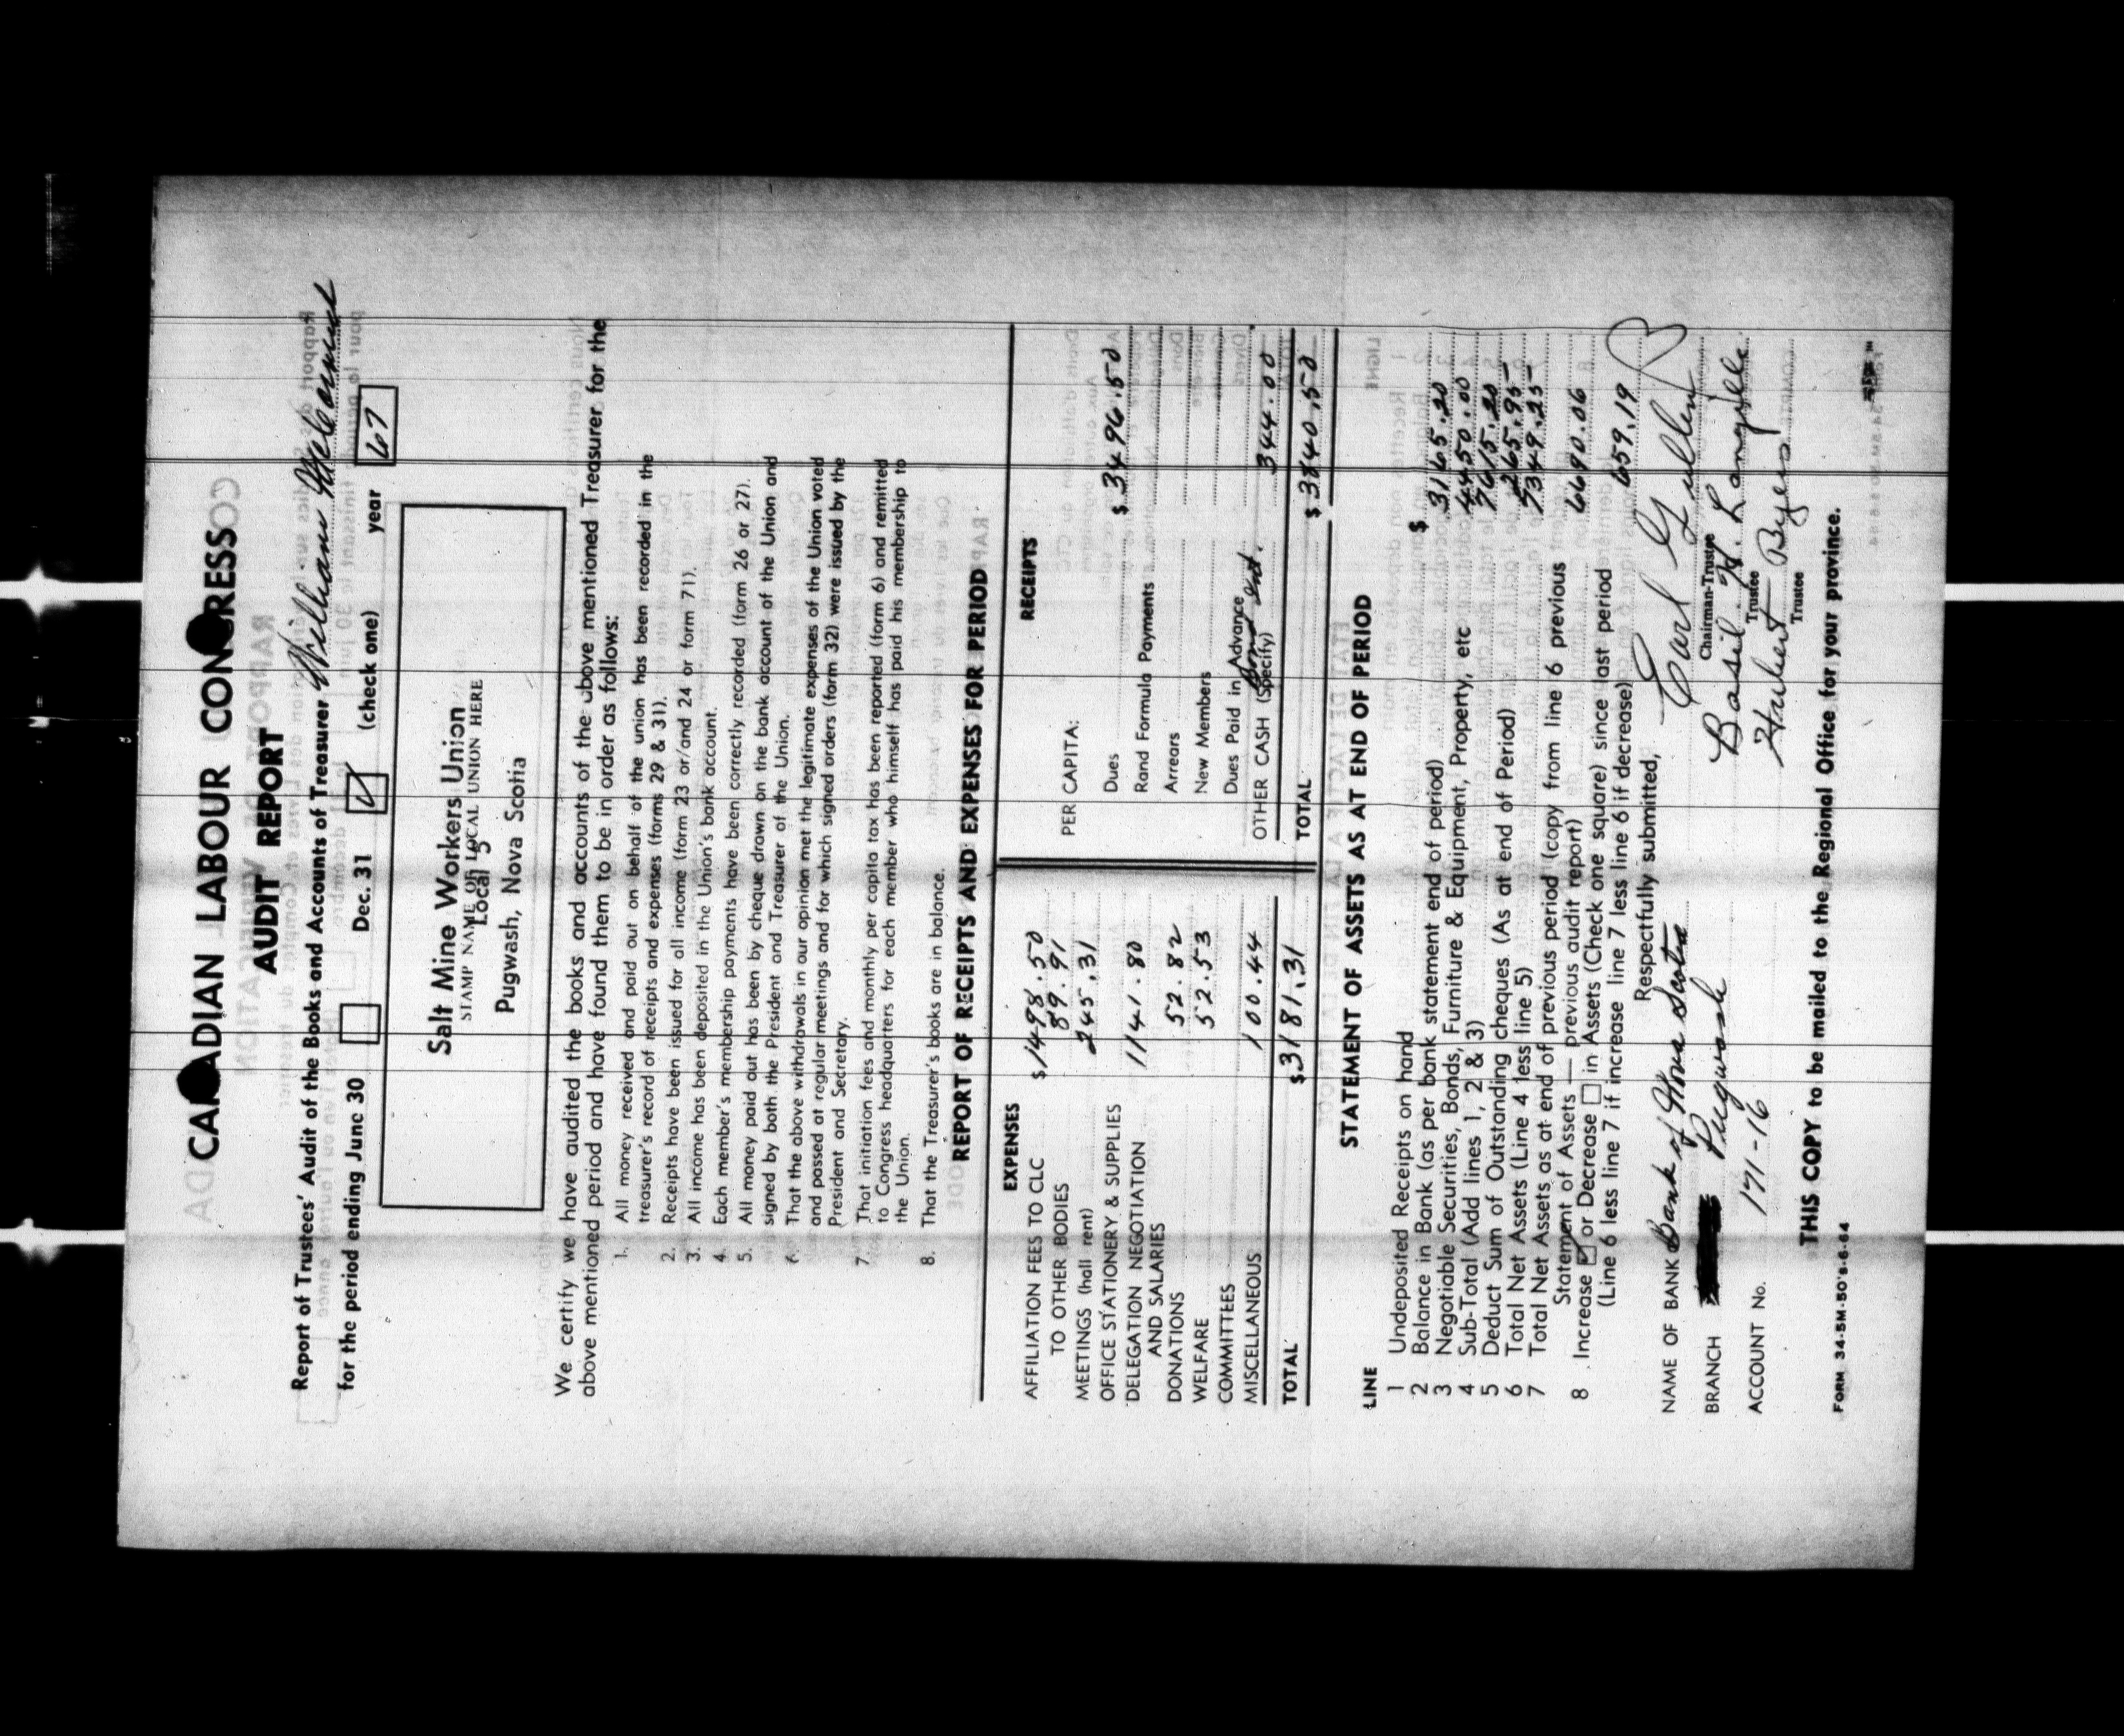 CANADIAN LABOUR CONGRESS
AUDIT REPORT
Report of Trustees' Audit of the Books and Accounts of Treasurer William
for the period ending June 30 Dec. 31 (check one) year 67
Salt Mine Workers Union
STAMP NAME OF LOCAL UNION HERE
Local 5
Pugwash, Nova Scotia
We certify we have audited the books and accounts of the above mentioned Treasurer for the
above mentioned period and have found them to be in order as follows:
1. All money received and paid out on behalf of the union has been recorded in the
treasurer's record of receipts and expenses (forms 29 & 31).
2. Receipts have been issued for all income (form 23 or/and 24 or form 71).
3. All income has been deposited in the Union's bank account.
4. Each member's membership payments have been correctly recorded (form 26 or 27).
5. All money paid out has been by cheque drawn on the bank account of the Union and
signed by both the President and Treasurer of the Union.
6. That the above withdrawals in our opinion met the legitimate expenses of the Union voted
and passed at regular meetings and for which signed orders (form 32) were issued by the
President and Secretary.
7. That initiation fees and monthly per capita tax has been reported (form 6) and remitted
to Congress headquarters for each member who himself has paid his membership to
the Union.
8. That the Treasurer's books are in balance.
REPORT OF RECEIPTS AND EXPENSES FOR PERIOD
EXPENSES
AFFILIATION FEES TO CLC $1498.50
TO OTHER BODIES 89.91
MEETINGS (hall rent) 245.31
OFFICE STATIONERY & SUPPLIES
DELEGATION NEGOTIATION 1141.80
AND SALARIES
DONATIONS 52.82
WELFARE 52.53
COMMITTEES
MISCELLANEOUS 100.44
TOTAL $3181.31
RECEIPTS
PER CAPITA:
Dues $3496.50
Rand Formula Payments
Arrears
New Members
Dues Paid in Advance
OTHER CASH (Specify) Bond int. 344.00
TOTAL $3840.50
STATEMENT OF ASSETS AS AT END OF PERIOD
LINE
1 Undeposited Receipts on hand $
2 Balance in Bank (as per bank statement end of period) 3165.20
3 Negotiable Securities, Bonds, Furniture & Equipment, Property, etc 4450.00
4 Sub-Total (Add lines 1, 2 & 3) 7615.20
5 Deduct Sum of Outstanding cheques (As at end of Period) 265.95
6 Total Net Assets (Line 4 less line 5) 7349.25
7 Total Net Assets as at end of previous period (copy from line 6 previous
Statement of Assets — previous audit report) 6690.06
8 Increase or Decrease in Assets (Check one square) since last period
(Line 6 less line 7 if increase line 7 less line 6 if decrease) 659.19
Respectfully submitted,
NAME OF BANK Bank of Nova Scotia
Earl
Chairman-Trustee
BRANCH Pugwash
Basil H. Langille
Trustee
ACCOUNT No. 171-16
Hubert Byers
Trustee
THIS COPY to be mailed to the Regional Office for your province.
FORM 34-5M-50'S-6-64